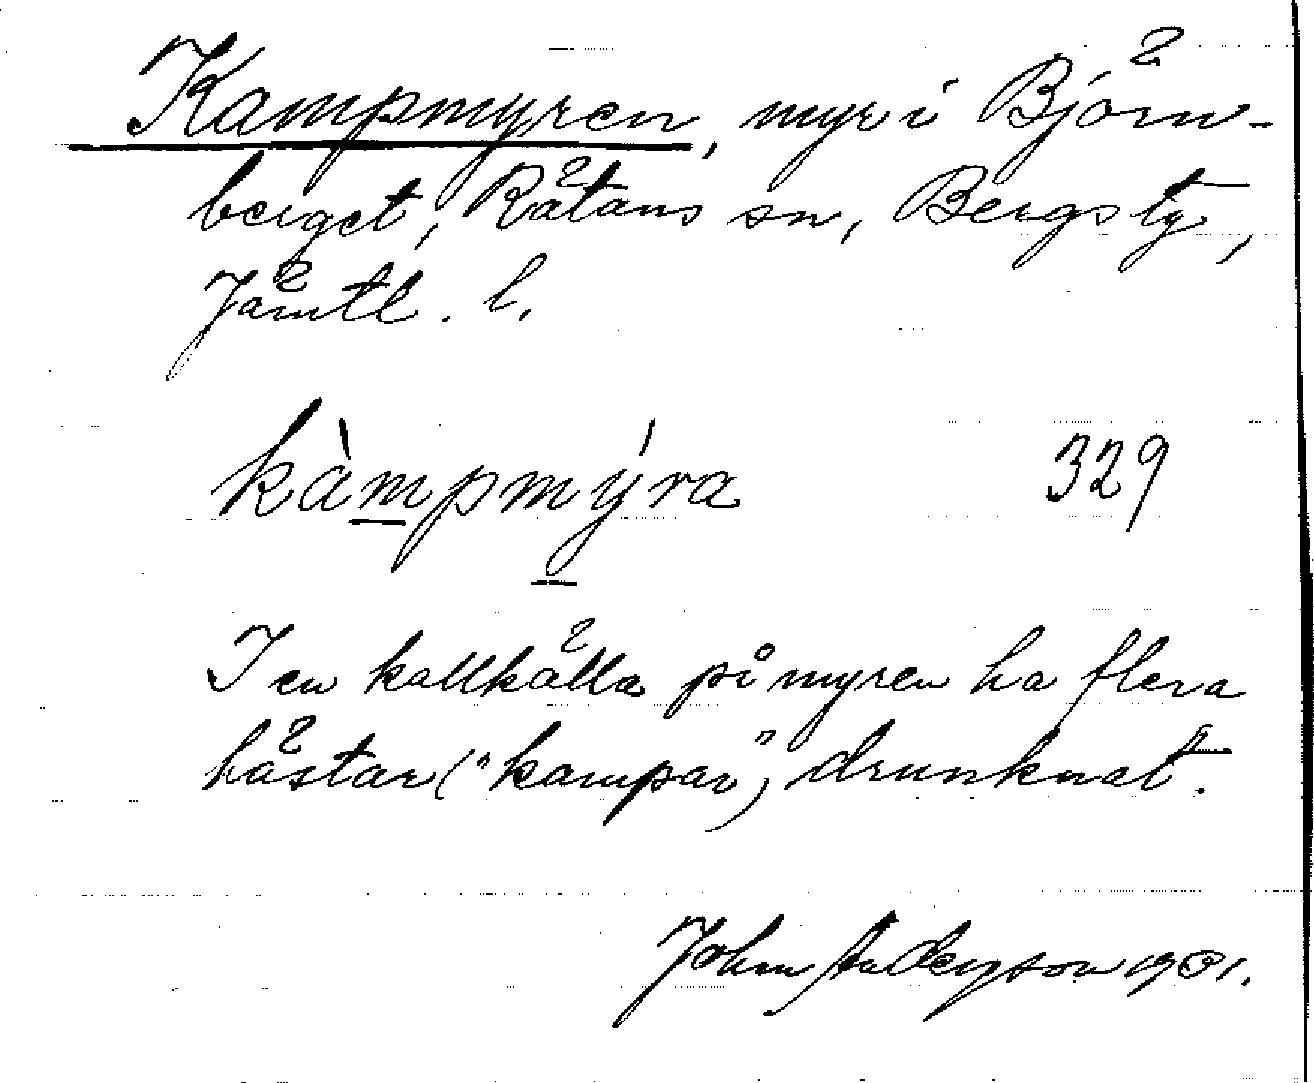 Kampmyren, myr i Björn-
berget, Rätans sn, Bergs tg,
Jämtl. l.
kàmpmýra 329
I en kallkälla på myren ha flera
hästar ("kampar") drunknat.
John Anderson